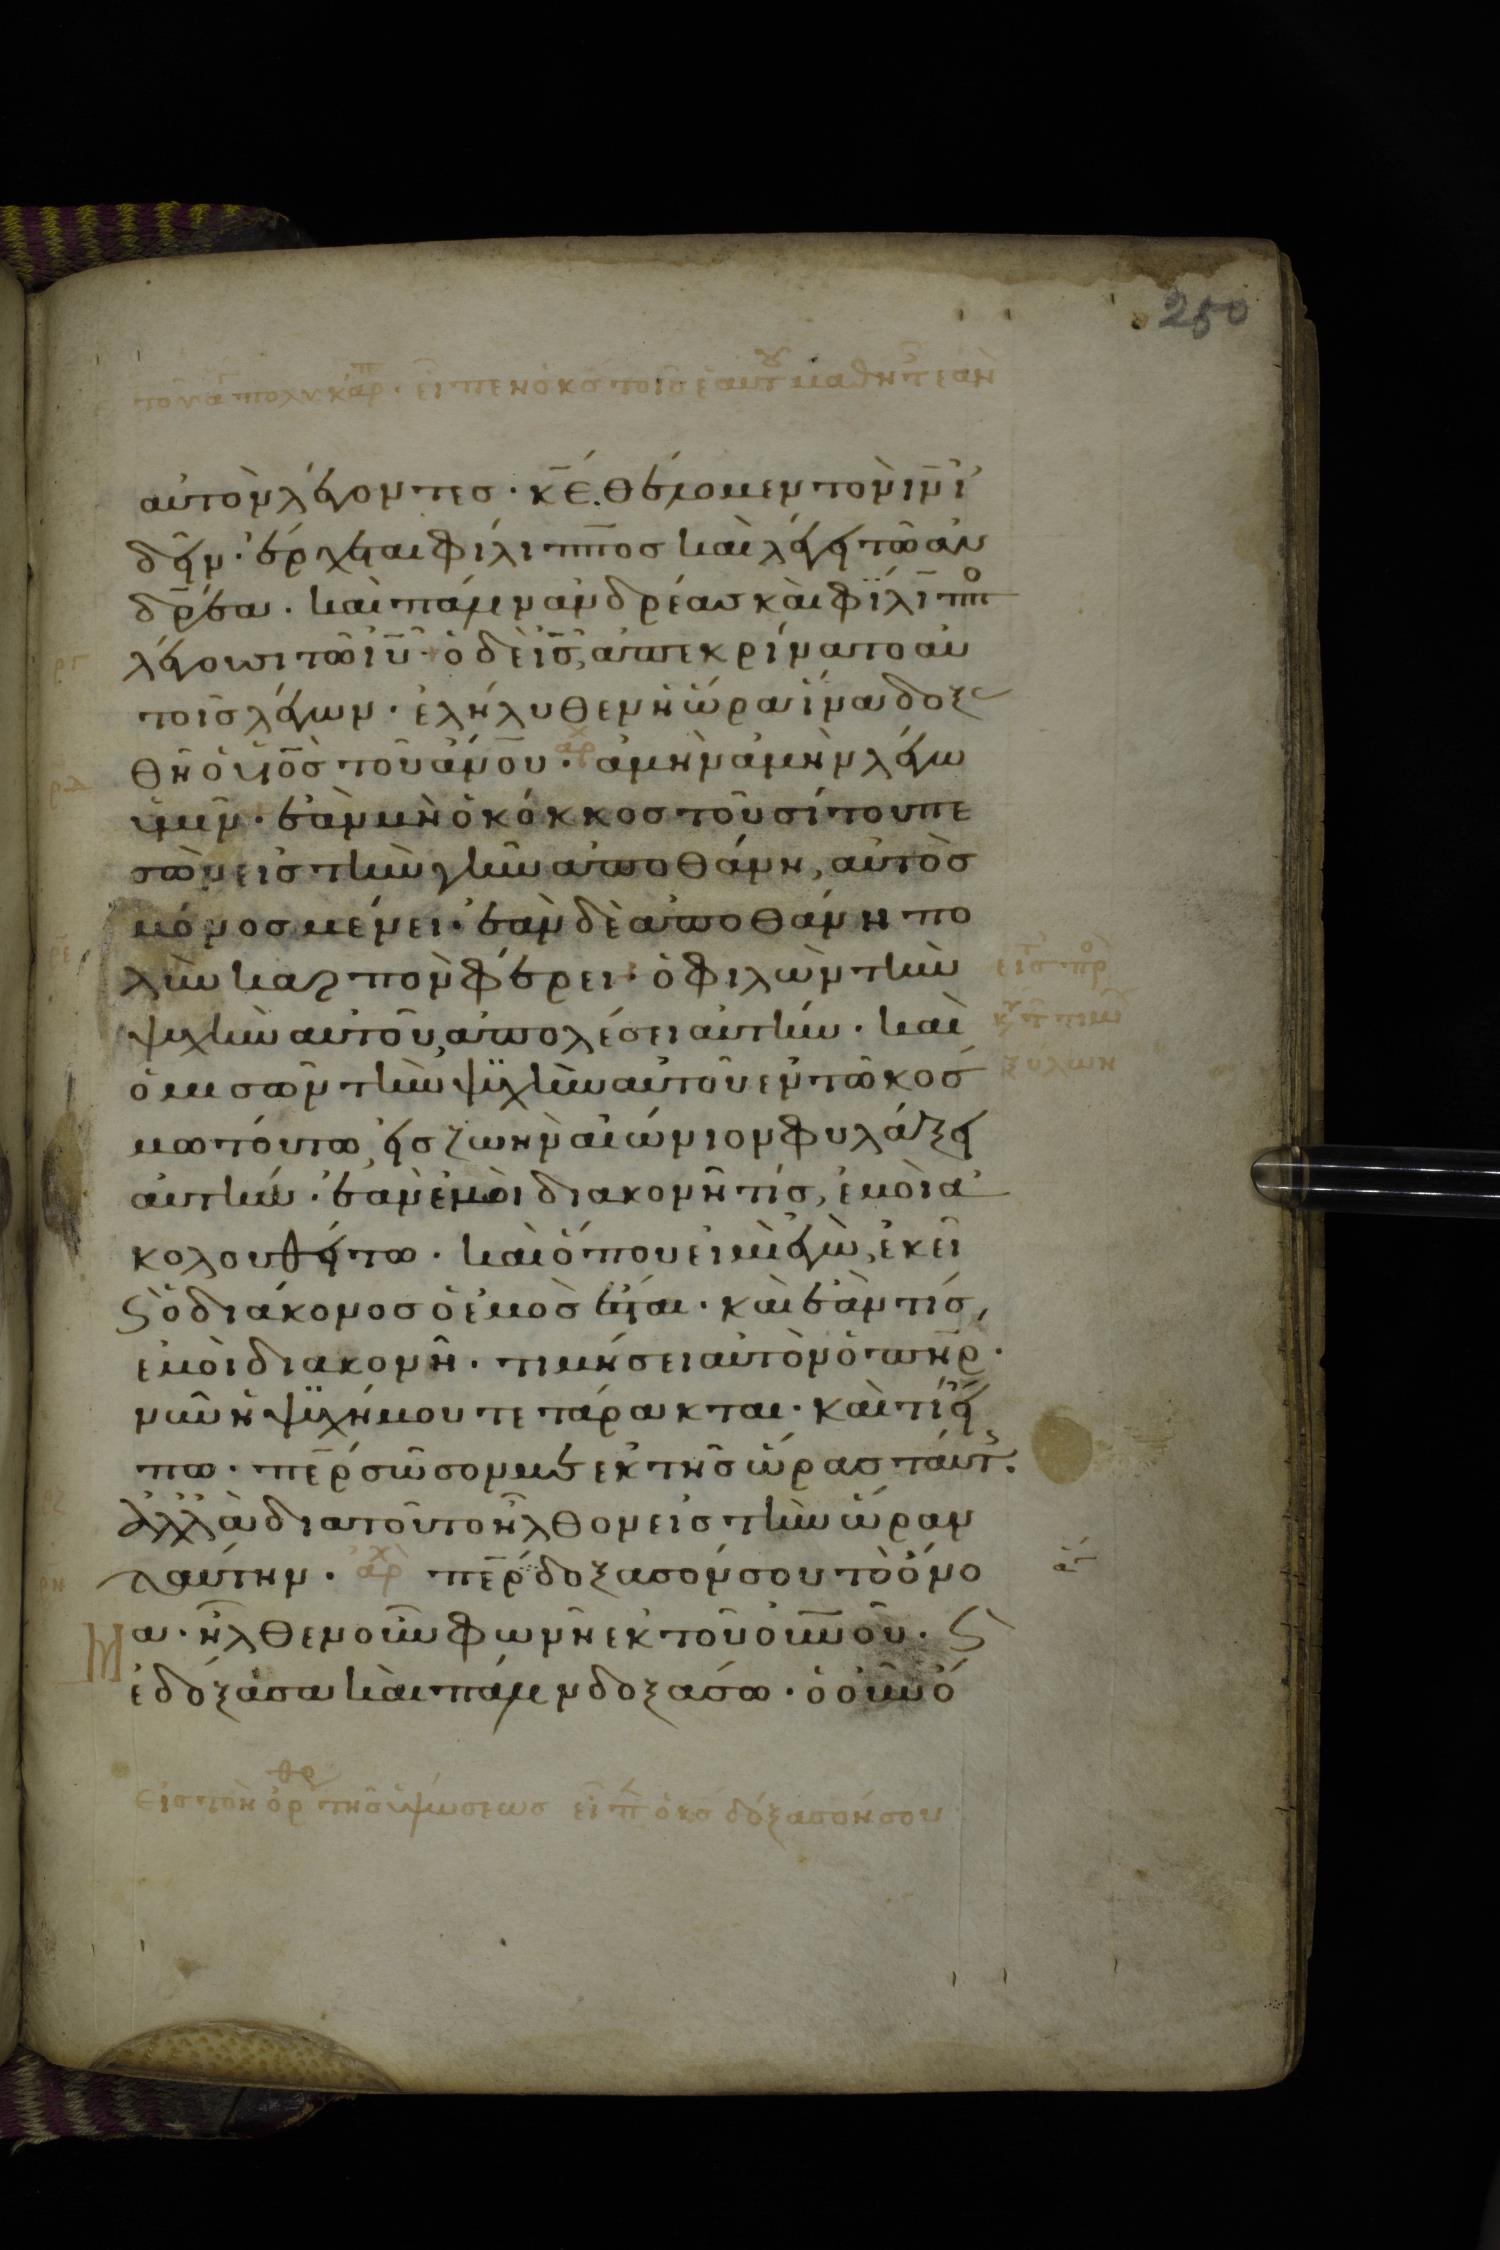 250
τοῦ ἁ πολυκάρπ · εἶπεν ὁ κς τοῖς ἑαυτοῦ μαθητ ἐὰν
αὐτὸν λέγοντες · κε θέλομεν τὸν ιν ἰ
δεῖν · ἔρχεται φίλιππος καὶ λέγει τῶ ἀν
δρέα · καὶ πάλιν ἀνδρέας καὶ φίλιππο
λέγουσι τῶ ιυ · ὁ δὲ ις, ἀπεκρίνατο αὐ
τοῖς λέγων · ἐλήλυθεν ἡ ὥρα ἵνα δοξα
θῆ ὁ υἱὸς τοῦ ανου · ἀρχ ἀμὴν ἀμὴν λέγω
ὑμῖν · ἐὰν μὴ ὁ κόκκος τοῦ σίτου πε
σὼν εἰς τὴν γῆν ἀποθάνη, αὐτὸς
μόνος μένει · ἐὰν δὲ ἀποθάνη πο
λὺν καρπὸν φέρει · ὁ φιλῶν τὴν
ψυχὴν αὐτοῦ, ἀπολέσει αὐτήν · καὶ
ὁ μισῶν τὴν ψυχὴν αὐτοῦ ἐν τῶ κόσ
μω τούτω, εἰς ζωὴν αἰώνιον φυλάξει
αὐτήν · ἐὰν ἐμοὶ διακονῆ τίς, ἐμοὶ ἀ
κολουθείτω · καὶ ὅπου εἰμὶ ἐγὼ, ἐκεῖ
ϛ ὁ διάκονος ὁ ἐμὸς ἔσται · καὶ ἐὰν τίς,
ἐμοὶ διακονῆ · τιμήσει αὐτὸν ὁ πηρ ·
νῦν ἡ ψυχή μου τετάρακται · καὶ τί εἴ
πω · περ σῶσον με ἐκ τῆς ὥρας ταύτ.
ἀλλὰ διατοῦτο ἦλθον εἰς τὴν ὥραν
ταύτην · ἀρχ περ δόξασόν σου τὸ ὄνο
α · ἦλθεν οὖν φωνὴ ἐκ τοῦ ουνου · ϛ
ἐδόξασα καὶ πάλιν δοξάσω · ὁ οὖν ὄ
εἰς τὸν ὄρθρ τῆς ὑψώσεως εἶπ ὁ κς δόξασόν σου